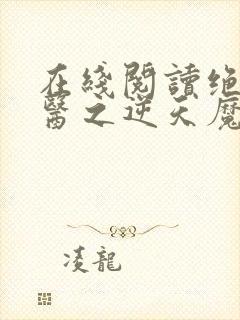 在綫閱讀绝
醫之逆天魔
凌龍